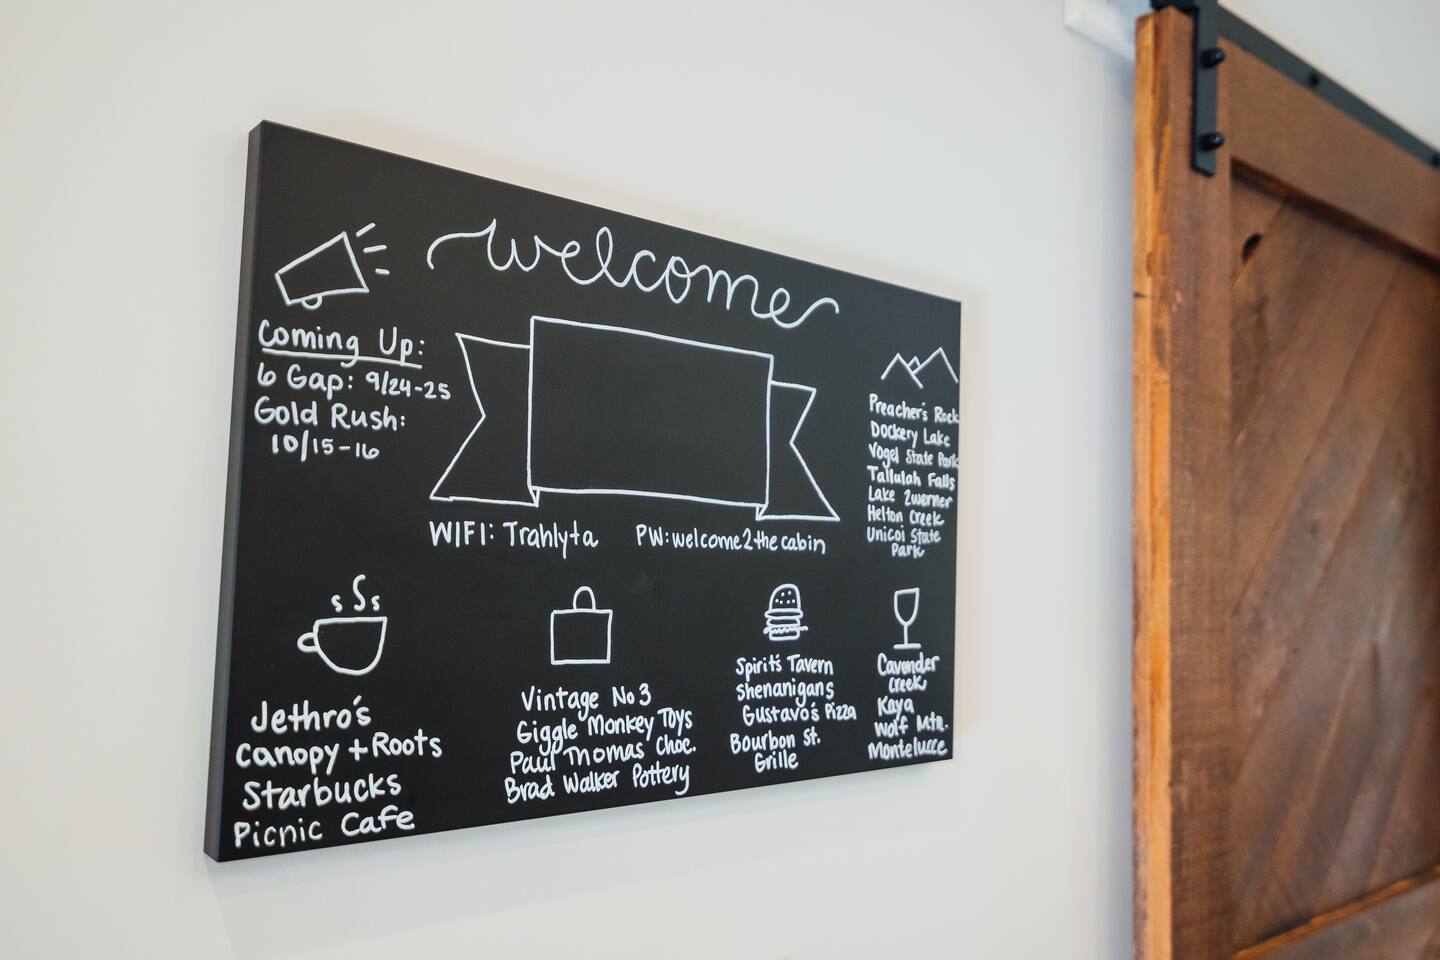 welcome
Coming Up:
6 Gap: 9/24-25
Gold Rush:
10/15-16
WIFI: Trahlyta
PW: welcome2thecabin
Preacher's Rock
Dockery Lake
Vogel State Park
Tallulah Falls
Lake Zwerner
Helton Creek
Unicoi State
Park
Jethro's
Canopy + Roots
Starbucks
Picnic Cafe
Vintage No 3
Giggle Monkey Toys
Paul Thomas Choc.
Brad Walker Pottery
Spirits Tavern
Shenanigans
Gustavo's Pizza
Bourbon St.
Grille
Cavender
Creek
Kaya
Wolf Mtn.
Montelucce